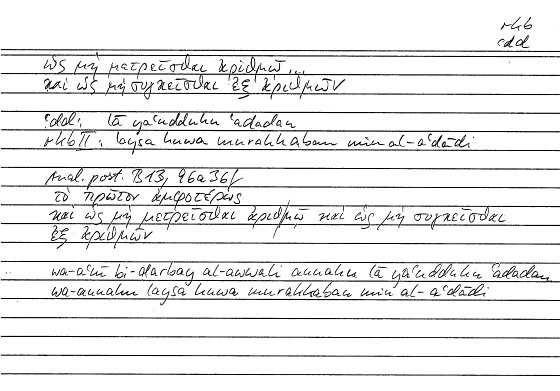 rkb
ʿdd
ὡς μὴ μετρεῖσθαι ἀριθμῷ...
καὶ ὡς μὴ συγκεῖσθαι ἐξ ἀριθμῶν
ʿdd: lā yaʿudduhu ʿadadan
rkb II: laysa huwa murakkaban min al-aʿdādi
Anal. post. B 13, 96a36f
τὸ πρῶτον ἀμφοτέρως
καὶ ὡς μὴ μετρεῖσθαι ἀριθμῷ καὶ ὡς μὴ συγκεῖσθαι
ἐξ ἀριθμῶν
wa-aʿnī bi-ḍarbay al-awwali annahu lā yaʿudduhu ʿadadan
wa-annahu laysa huwa murakkaban min al-aʿdādi